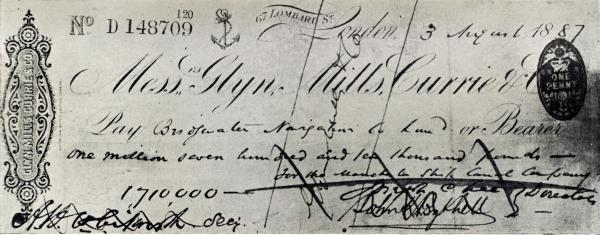 No D 148709 120
67 LOMBARD ST.
London, 3 August 1887
GLYN, MILLS, CURRIE & CO
Messrs Glyn, Mills, Currie & Co
ONE PENNY
Pay Bridgwater Navigation Co Limd or Bearer
one million seven hundred and ten thousand pounds —
for the Manchester Ship Canal Company
1710000 — Directors
Secy.